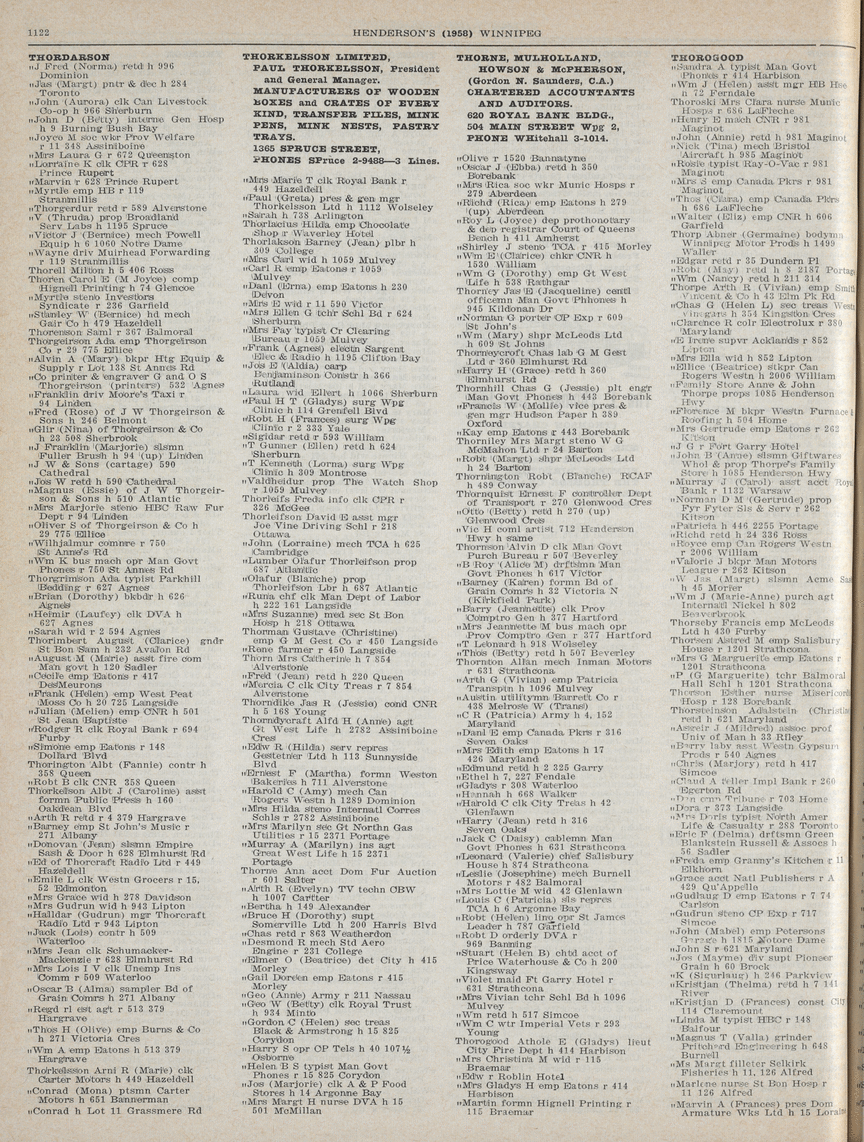 1122
HENDERSON'S (1958) WINNIPEG
THORDARSON
"J Fred (Norma) retd h 996
Dominion
"Jas (Margt) pntr & dec h 284
Toronto
"John (Aurora) clk Can Livestock
Co-op h 966 Sherburn
"John D (Betty) interne Gen Hosp
h 9 Burning Bush Bay
"Joyce M soc wkr Prov Welfare
r 11 348 Assiniboine
"Mrs Laura G r 672 Queenston
"Lorraine K clk CPR r 628
Prince Rupert
"Marvin r 628 Prince Rupert
"Myrtle emp HB r 119
Stranmillis
"Thorgerdur retd r 589 Alverstone
"V (Thruda) prop Broadland
Serv Labs h 1195 Spruce
"Victor J (Bernice) mech Powell
Equip h 6 1060 Notre Dame
"Wayne driv Muirhead Forwarding
r 119 Stranmillis
Thorell Milton h 5 406 Ross
Thoren Carol E (M Joyce) comp
Hignell Printing h 74 Glencoe
"Myrtle steno Investors
Syndicate r 236 Garfield
"Stanley W (Bernice) hd mech
Gair Co h 479 Hazeldell
Thorenson Saml r 367 Balmoral
Thorgeirson Ada emp Thorgeirson
Co r 29 775 Ellice
"Alvin A (Mary) bkpr Htg Equip &
Supply r Lot 138 St Annes Rd
"Co printer & engraver G and O S
Thorgeirson (printers) 532 Agnes
"Franklin driv Moore's Taxi r
94 Linden
"Fred (Rose) of J W Thorgeirson &
Sons h 246 Belmont
"Glir (Nina) of Thorgeirson & Co
h 23 508 Sherbrook
"J Franklin (Marjorie) slsmn
Fuller Brush h 94 (up) Linden
"J W & Sons (cartage) 590
Cathedral
"Jos W retd h 590 Cathedral
"Magnus (Essie) of J W Thorgeir-
son & Sons h 510 Atlantic
"Mrs Marjorie steno HBC Raw Fur
Dept r 94 Linden
"Oliver S of Thorgeirson & Co h
29 775 Ellice
"Wilhjalmur comnre r 750
St Anne's Rd
"Wm K bus mach opr Man Govt
Phones r 750 St Annes Rd
Thorgrimson Ada typist Parkhill
Bedding r 627 Agnes
"Brian (Dorothy) bkbdr h 626
Agnes
"Heimir (Laufey) clk DVA h
627 Agnes
"Sarah wid r 2 594 Agnes
Thorimbert August (Clarice) gndr
St Bon San h 232 Avalon Rd
"August M (Marie) asst fire com
Man govt h 120 Sadler
"Cecile emp Eatons r 417
DesMeurons
"Frank (Helen) emp West Peat
Moss Co h 20 725 Langside
"Julian (Melien) emp CNR h 501
St Jean Baptiste
"Rodger R clk Royal Bank r 694
Furby
"Simone emp Eatons r 148
Dollard Blvd
Thorington Albt (Fannie) contr h
358 Queen
"Robt B clk CNR 358 Queen
Thorkelson Albt J (Caroline) asst
formn Public Press h 160
Oakdean Blvd
"Arth R retd r 4 379 Hargrave
"Barney emp St John's Music r
271 Albany
"Donovan (Jean) slsmn Empire
Sash & Door h 628 Elmhurst Rd
"Ed of Thorcraft Radio Ltd r 449
Hazeldell
"Emile L clk Westn Grocers r 15,
52 Edmonton
"Mrs Grace wid h 278 Davidson
"Mrs Gudrun wid h 943 Lipton
"Halldar (Gudrun) mgr Thorcraft
Radio Ltd r 943 Lipton
"Jack (Lois) contr h 509
Waterloo
"Mrs Jean clk Schumacker-
Mackenzie r 628 Elmhurst Rd
"Mrs Lois I V clk Unemp Ins
Comm r 509 Waterloo
"Oscar B (Alma) sampler Bd of
Grain Comrs h 271 Albany
"Regd rl est agt r 513 379
Hargrave
"Thos H (Olive) emp Burns & Co
h 271 Victoria Cres
"Wm A emp Eatons h 513 379
Hargrave
Thorkelsson Arni R (Marie) clk
Carter Motors h 449 Hazeldell
"Conrad (Mona) ptsmn Carter
Motors h 651 Bannerman
"Conrad h Lot 11 Grassmere Rd
THORKELSSON LIMITED,
PAUL THORKELSSON, President
and General Manager.
MANUFACTURERS OF WOODEN
BOXES and CRATES OF EVERY
KIND, TRANSFER FILES, MINK
PENS, MINK NESTS, PASTRY
TRAYS.
1365 SPRUCE STREET,
PHONES SPruce 2-9488—3 Lines.
"Mrs Marie T clk Royal Bank r
449 Hazeldell
"Paul (Greta) pres & gen mgr
Thorkelsson Ltd h 1112 Wolseley
"Sarah h 738 Arlington
Thorlacius Hilda emp Chocolate
Shop r Waverley Hotel
Thorlakson Barney (Jean) plbr h
309 College
"Mrs Carl wid h 1059 Mulvey
"Carl R emp Eatons r 1059
Mulvey
"Danl (Erna) emp Eatons h 230
Devon
"Mrs E wid r 11 590 Victor
"Mrs Ellen G tchr Schl Bd r 624
Sherburn
"Mrs Fay typist Cr Clearing
Bureau r 1059 Mulvey
"Frank (Agnes) electn Sargent
Elec & Radio h 1195 Clifton Bay
"Jos E (Aldia) carp
Benjaminson Constr h 366
Rutland
"Laura wid Elfert h 1066 Sherburn
"Paul H T (Gladys) surg Wpg
Clinic h 114 Grenfell Blvd
"Robt H (Frances) surg Wpg
Clinic r 2 333 Yale
"Sigidar retd r 593 William
"T Gunner (Ellen) retd r 624
Sherburn
"T Kenneth (Lorna) surg Wpg
Clinic h 309 Montrose
"Valdheidur prop The Watch Shop
r 1059 Mulvey
Thorleifs Freda info clk CPR r
326 McGee
Thorleifson David E asst mgr
Joe Vine Driving Schl r 218
Ottawa
"John (Lorraine) mech TCA h 625
Cambridge
"Lumber Olafur Thorleifson prop
687 Atlantic
"Olafur (Blanche) prop
Thorleifson Lbr h 687 Atlantic
"Runa chf clk Man Dept of Labor
h 222 161 Langside
"Mrs Suzanne med sec St Bon
Hosp h 218 Ottawa
Thorman Gustave (Christine)
emp G M Gest Co r 450 Langside
"Rene farmer r 450 Langside
Thorn Mrs Catherine h 7 854
Alverstone
"Fred (Jean) retd h 220 Queen
"Mercia C clk City Treas r 7 854
Alverstone
Thorndike Jas R (Jessie) cond CNR
h 5 168 Young
Thorndycraft Alfd H (Anne) agt
Gt West Life h 2782 Assiniboine
Cres
"Edw R (Hilda) serv repres
Gestetner Ltd h 113 Sunnyside
Blvd
"Ernest F (Martha) formn Weston
Bakeries h 711 Alverstone
"Harold C (Amy) mech Can
Rogers Westn h 1289 Dominion
"Mrs Hilda steno Internatl Corres
Schls r 2782 Assiniboine
"Mrs Marilyn sec Gt Northn Gas
Utilities r 15 2371 Portage
"Murray A (Marilyn) ins agt
Great West Life h 15 2371
Portage
Thorne Ann acct Dom Fur Auction
r 601 Salter
"Arth R (Evelyn) TV techn CBW
h 1007 Cartier
"Bertha h 149 Alexander
"Bruce H (Dorothy) supt
Somerville Ltd h 200 Harris Blvd
"Chas retd r 863 Weatherdon
"Desmond R mech Std Aero
Engine r 231 College
"Elmer O (Beatrice) det City h 415
Morley
"Gail Doreen emp Eatons r 415
Morley
"Geo (Anne) Army r 211 Nassau
"Geo W (Betty) clk Royal Trust
h 934 Minto
"Gordon C (Helen) sec treas
Black & Armstrong h 15 825
Corydon
"Harry S opr CP Tels h 40 107½
Osborne
"Helen B S typist Man Govt
Phones r 15 825 Corydon
"Jos (Marjorie) clk A & P Food
Stores h 14 Argonne Bay
"Mrs Margt H nurse DVA h 15
501 McMillan
THORNE, MULHOLLAND,
HOWSON & McPHERSON,
(Gordon N. Saunders, C.A.)
CHARTERED ACCOUNTANTS
AND AUDITORS.
620 ROYAL BANK BLDG.,
504 MAIN STREET Wpg 2,
PHONE WHitehall 3-1014.
"Olive r 1520 Bannatyne
"Oscar J (Ebba) retd h 350
Borebank
"Mrs Rica soc wkr Munic Hosps r
279 Aberdeen
"Richd (Rica) emp Eatons h 279
(up) Aberdeen
"Roy L (Joyce) dep prothonotary
& dep registrar Court of Queens
Bench h 411 Amherst
"Shirley J steno TCA r 415 Morley
"Wm E (Clarice) chkr CNR h
1530 William
"Wm G (Dorothy) emp Gt West
Life h 538 Rathgar
Thorney Jas E (Jacqueline) centl
officemn Man Govt Phhones h
945 Kildonan Dr
"Norman G porter CP Exp r 609
St John's
"Wm (Mary) shpr McLeods Ltd
h 609 St Johns
Thorneycroft Chas lab G M Gest
Ltd r 360 Elmhurst Rd
"Harry H (Grace) retd h 360
Elmhurst Rd
Thornhill Chas G (Jessie) plt engr
Man Govt Phones h 443 Borebank
"Francis W (Mollie) vice pres &
gen mgr Hudson Paper h 389
Oxford
"Kay emp Eatons r 443 Borebank
Thorniley Mrs Margt steno W G
McMahon Ltd r 24 Barton
"Robt (Margt) shpr McLeods Ltd
h 24 Barton
Thornington Robt (Blanche) RCAF
h 489 Conway
Thornquist Ernest F controller Dept
of Transport r 270 Glenwood Cres
"Otto (Betty) retd h 270 (up)
Glenwood Cres
"Vic H coml artist 712 Henderson
Hwy h same
Thornson Alvin D clk Man Govt
Purch Bureau r 507 Beverley
"B Roy (Alice M) drftsmn Man
Govt Phones h 617 Victor
"Barney (Karen) formn Bd of
Grain Comrs h 32 Victoria N
(Kirkfield Park)
"Barry (Jeannette) clk Prov
Comptro Gen r 377 Hartford
"Mrs Jeannette M bus mach opr
Prov Comptro Gen r 377 Hartford
"T Leonard h 918 Wolseley
"Thos (Betty) retd h 507 Beverley
Thornton Allan mech Inman Motors
r 631 Strathcona
"Arth G (Vivian) emp Patricia
Transptn h 1096 Mulvey
"Austin utilitymn Barrett Co r
438 Melrose W (Trans)
"C R (Patricia) Army h 4, 152
Maryland
"Danl E emp Canada Pkrs r 316
Seven Oaks
"Mrs Edith emp Eatons h 17
426 Maryland
"Edmund retd r 2 325 Garry
"Ethel h 7, 227 Fendale
"Gladys r 308 Waterloo
"Hannah h 668 Walker
"Harold C clk City Treas h 42
Glenlawn
"Harry (Jean) retd h 316
Seven Oaks
"Jack C (Daisy) cablemn Man
Govt Phones h 631 Strathcona
"Leonard (Valerie) chef Salisbury
House h 874 Strathcona
"Leslie (Josephine) mech Burnell
Motors r 482 Balmoral
"Mrs Lottie M wid 42 Glenlawn
"Louis C (Patricia) sls repres
TCA h 6 Argonne Bay
"Robt (Helen) lino opr St James
Leader h 787 Garfield
"Robt D orderly DVA r
969 Banning
"Stuart (Helen B) chtd acct of
Price Waterhouse & Co h 200
Kingsway
"Violet maid Ft Garry Hotel r
631 Strathcona
"Mrs Vivian tchr Schl Bd h 1096
Mulvey
"Wm retd h 517 Simcoe
"Wm C wtr Imperial Vets r 293
Young
Thorogood Athole E (Gladys) lieut
City Fire Dept h 414 Harbison
"Mrs Christina M wid r 115
Braemar
"Edw r Roblin Hotel
"Mrs Gladys H emp Eatons r 414
Harbison
"Martin formn Hignell Printing r
115 Braemar
THOROGOOD
"Sandra A typist Man Govt
Phones r 414 Harbison
"Wm J (Helen) asst mgr HB Hse
h 72 Ferndale
Thoroski Mrs Clara nurse Munic
Hosps r 686 LaFleche
"Henry E mach CNR r 981
Maginot
"John (Annie) retd h 981 Maginot
"Nick (Tina) mech Bristol
Aircraft h 985 Maginot
"Rosie typist Ray-O-Vac r 981
Maginot
"Mrs S emp Canada Pkrs r 981
Maginot
"Thos (Clara) emp Canada Pkrs
h 686 LaFleche
"Walter (Eliz) emp CNR h 606
Garfield
Thorp Abner (Germaine) bodymn
Winnipeg Motor Prods h 1499
Waller
"Edgar retd r 35 Dundern Pl
"Robt (May) retd h 8 2187 Portage
"Wm (Nancy) retd h 211 314
Thorpe Arth R (Vivian) emp Smith
Vincent & Co h 43 Elm Pk Rd
"Chas G (Helen L) sec treas Westn
Vinegars h 354 Kingston Cres
"Clarence R colr Electrolux r 380
Maryland
"E Irene supvr Acklands r 852
Lipton
"Mrs Ella wid h 852 Lipton
"Ellice (Beatrice) stkpr Can
Rogers Westn h 2006 William
"Family Store Anne & John
Thorpe props 1085 Henderson
Hwy
"Florence M bkpr Westn Furnace
Roofing h 504 Home
"Mrs Gertrude emp Eatons r 262
Kitson
"J G r Fort Garry Hotel
"John B (Anne) slsmn Giftwares
Whol & prop Thorpe's Family
Store h 1085 Henderson Hwy
"Murray J (Carol) asst acct Royal
Bank r 1132 Warsaw
"Norman D M (Gertrude) prop
Fyr Fyter Sls & Serv r 262
Kitson
"Patricia h 446 2255 Portage
"Richd retd h 24 336 Ross
"Royce emp Can Rogers Westn
r 2006 William
"Valorie J bkpr Man Motors
League r 262 Kitson
"W Jas (Margt) slsmn Acme
h 45 Morier
"Wm J (Marie-Anne) purch agt
Internatl Nickel h 802
Beaverbrook
Thorseby Francis emp McLeods
Ltd h 430 Furby
Thorsen Astred M emp Salisbury
House r 1201 Strathcona
"Mrs G Marguerite emp Eatons r
1201 Strathcona
"P (G Marguerite) tchr Balmoral
Hall Schl h 1201 Strathcona
Thorson Esther nurse Misericordia
Hosp r 128 Borebank
Thorsteinson Adalstein (Christine)
retd h 621 Maryland
"Asgeir J (Mildred) assoc prof
Univ of Man h 33 Riley
"Barry laby asst Westn Gypsum
Prods r 540 Agnes
"Chris (Marjory) retd h 417
Simcoe
"Claud A teller Impl Bank r 260
Egerton Rd
"Dan emp Tribune r 703 Home
"Dora r 373 Langside
"Mrs Doris typist North Amer
Life & Casualty r 288 Toronto
"Eric F (Delma) drftsmn Green
Blankstein Russell & Assocs h
56 Sadler
"Freda emp Granny's Kitchen r 11
Elkhorn
"Grace acct Natl Publishers r A
429 Qu'Appelle
"Gudlaug D emp Eatons r 7 74
Carlson
"Gudrun steno CP Exp r 717
Simcoe
"John (Mabel) emp Petersons
Garage h 1815 Notore Dame
"John S r 621 Maryland
"Jos (Mayme) div supt Pioneer
Grain h 60 Brock
"K (Sigurlaug) h 246 Parkview
"Kristjan (Thelma) retd h 7 141
River
"Kristjan D (Frances) const City
114 Claremount
"Linda M typist HBC r 148
Balfour
"Magnus T (Valla) grinder
Pritchard Engineering h 648
Burnell
"Ms Margt filleter Selkirk
Fisheries h 11, 126 Alfred
"Marlene nurse St Bon Hosp r
11 126 Alfred
"Marvin A (Frances) pres Dom
Armature Wks Ltd h 15 Lorai